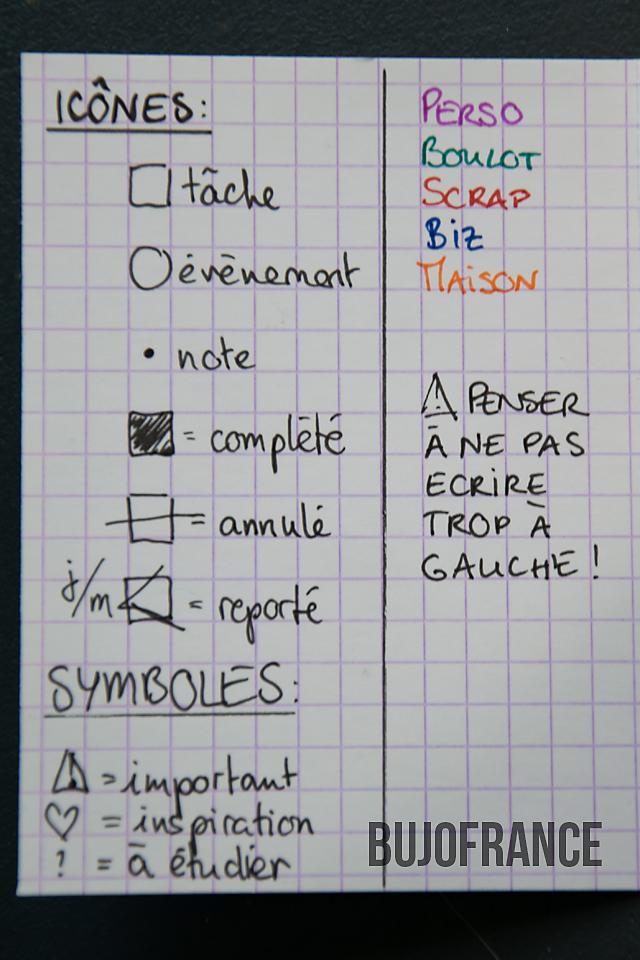 ICÔNES:
tâche
évènement
• note
= complété
= annulé
j/m = reporté
SYMBOLES:
⚠ = important
♡ = inspiration
! = à étudier
PERSO
BOULOT
SCRAP
BIZ
MAISON
⚠ PENSER
À NE PAS
ECRIRE
TROP À
GAUCHE !
BUJOFRANCE